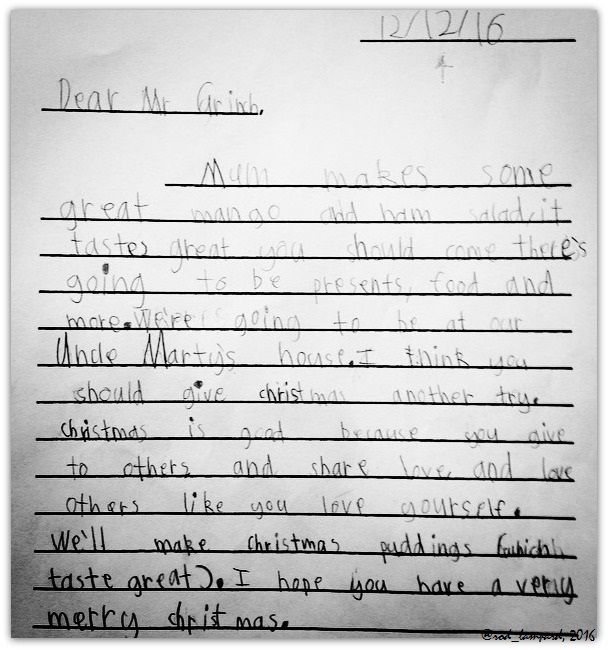 12/12/16
Dear Mr Grinch.
Mum makes some
great mango and ham salad, it
tastes great you should come there's
going to be presents, food and
more. We're going to be at our
Uncle Marty's house. I think you
should give christmas another try.
christmas is good because you give
to others and share love and love
others like you love yourself.
We'll make christmas puddings (which
taste great). I hope you have a verry
merry christmas.
@rod_lampard, 2016